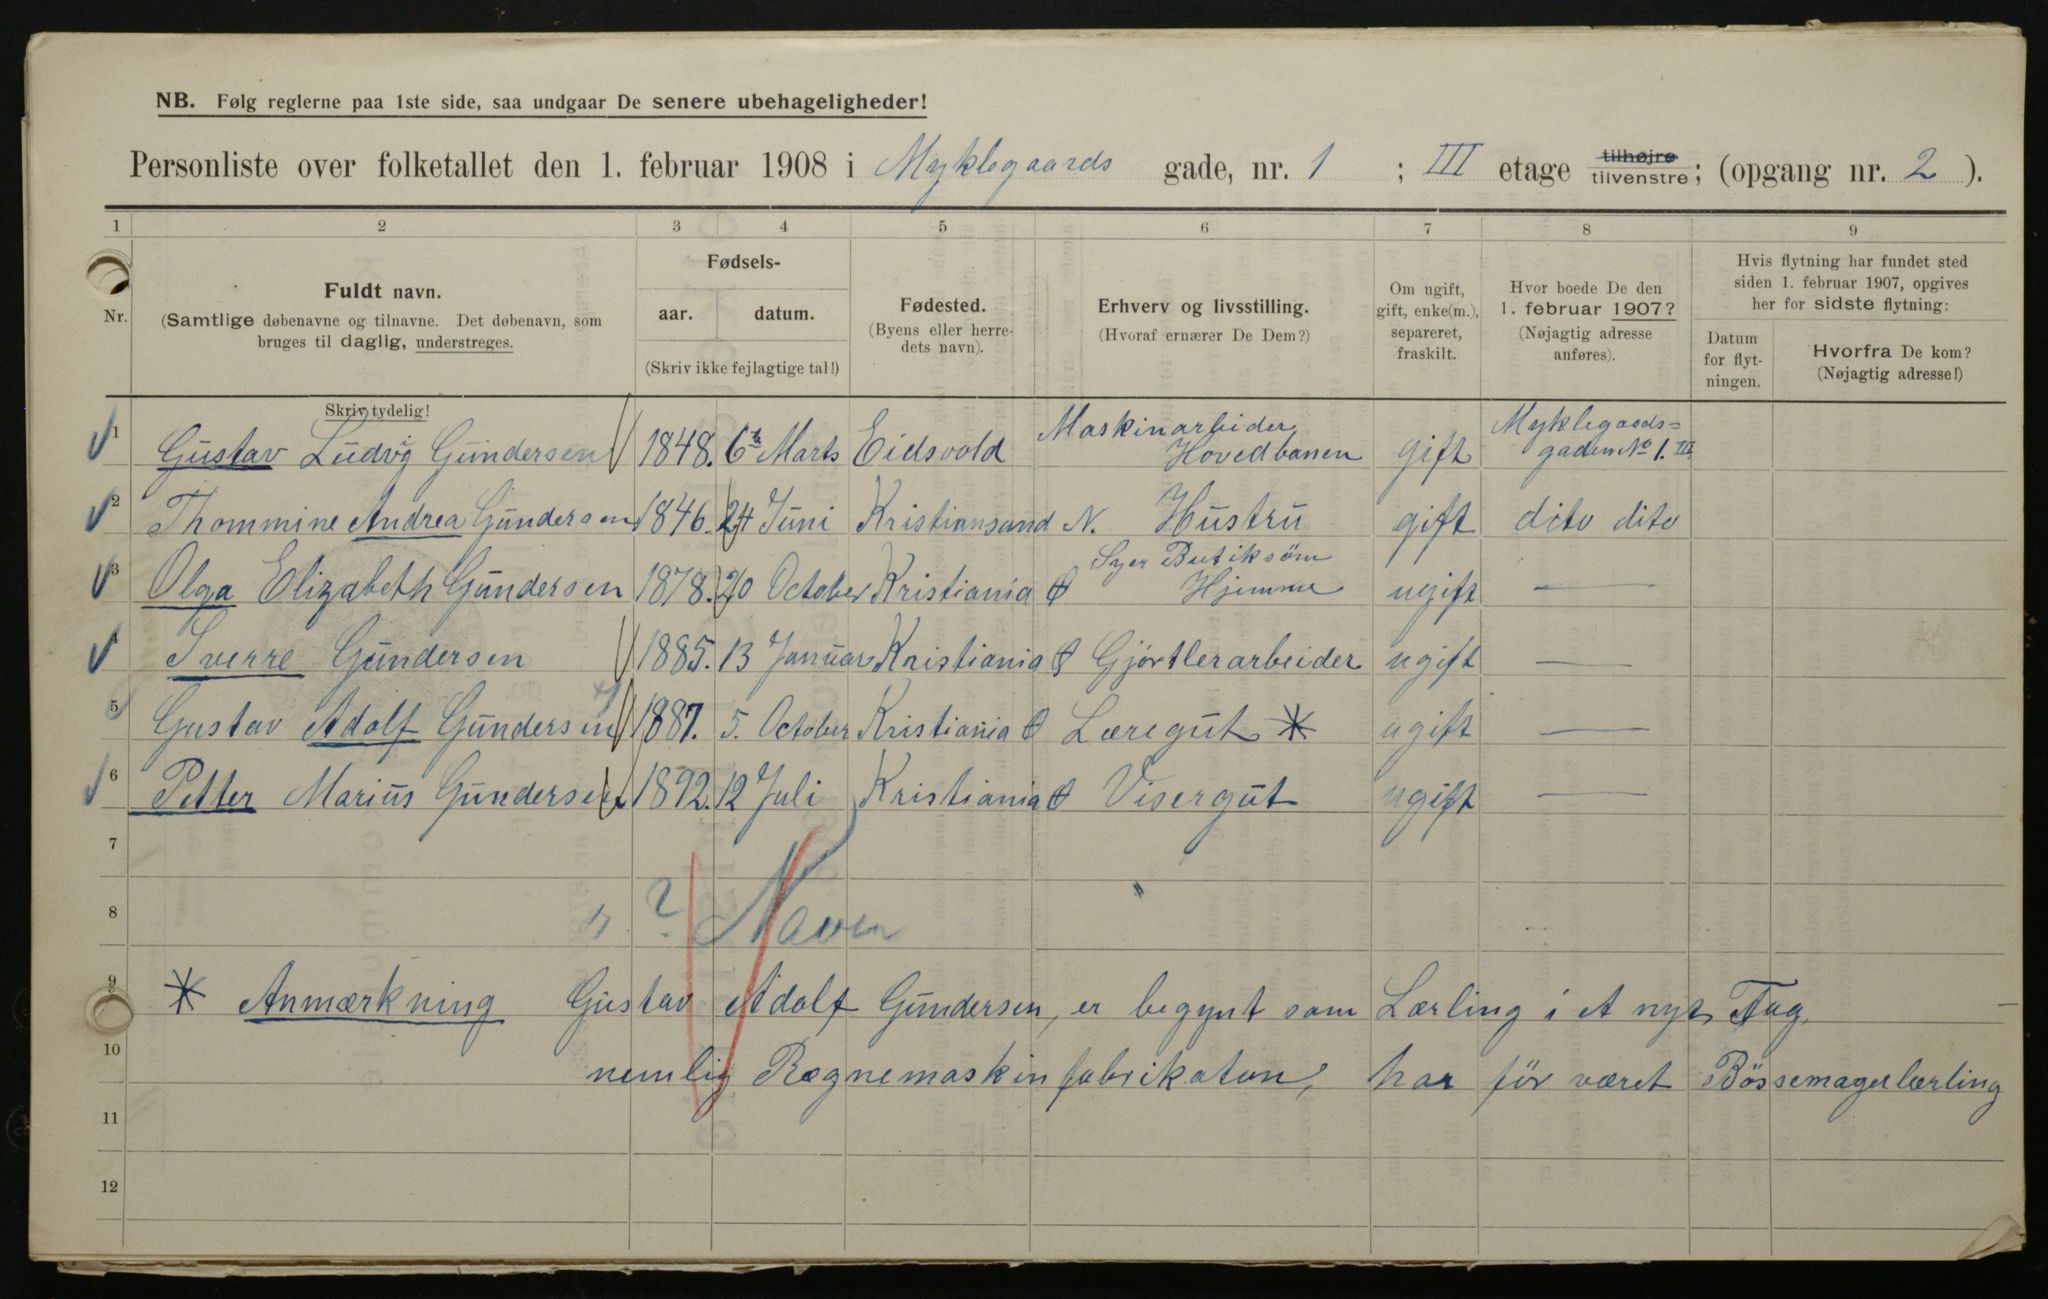 NB. Følg reglerne paa 1ste side, saa undgaar De senere ubehageligheder!
Personliste over folketallet den 1. februar 1908 i Myklegaards gade, nr. 1 ; III etage tilhøjre tilvenstre; (opgang nr. 2 ).
1 2 3 4 5 6 7 8 9
Nr.
Fuldt navn.
(Samtlige døbenavne og tilnavne. Det døbenavn, som
bruges til daglig, understreges.
Skriv tydelig!
Fødsels-
aar. datum.
(Skriv ikke fejlagtige tal!)
Fødested.
(Byens eller herre-
dets navn).
Erhverv og livsstilling.
(Hvoraf ernærer De Dem?)
Om ugift,
gift, enke(m.),
separeret,
fraskilt.
Hvor boede De den
1. februar 1907?
(Nøjagtig adresse
anføres).
Hvis flytning har fundet sted
siden 1. februar 1907, opgives
her for sidste flytning:
Datum
for flyt-
ningen.
Hvorfra De kom?
(Nøjagtig adresse!)
1 Gustav Ludvig Gundersen 1848. 6te Marts Eidsvold Maskinarbeider Hovedbanen gift Myklegaards= gaden No 1. III.
2 Thommine Andrea Gundersen 1846. 24 Juni Kristiansund N. Hustru gift dito dito
3 Olga Elizabeth Gundersen 1878. 20 October Kristiania Syer Butiksöm Hjemme ugift —
4 Sverre Gundersen 1885. 13 Januar Kristiania Gjörtlerarbeider ugift —
5 Gustav Adolf Gundersen 1887. 5. October Kristiania Læregut * ugift —
6 Petter Marius Gundersen 1892. 12 Juli Kristiania Visergut ugift —
7
8 ?
9 * Anmærkning Gustav Adolf Gundersen, er begynt som Lærling i et nyt Fag,
10 nemlig Regnemaskinfabrikation, har för været Bössemagerlærling
11
12